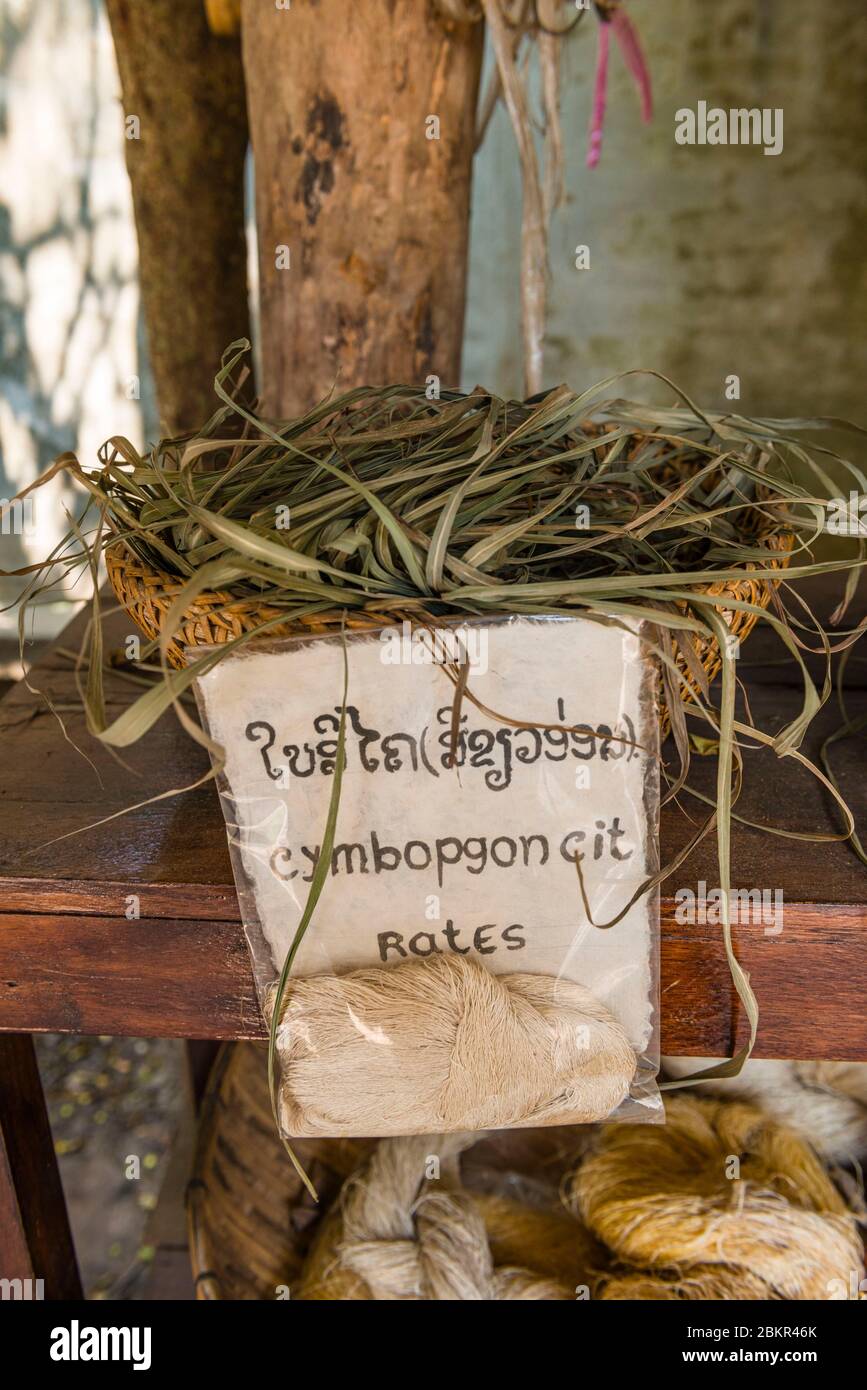 ໃບສີໄຄ(ສີຂຽວອ່ອນ).
cymbopgon cit
Rates
a
alamy
Image ID: 2BKR46K
www.alamy.com